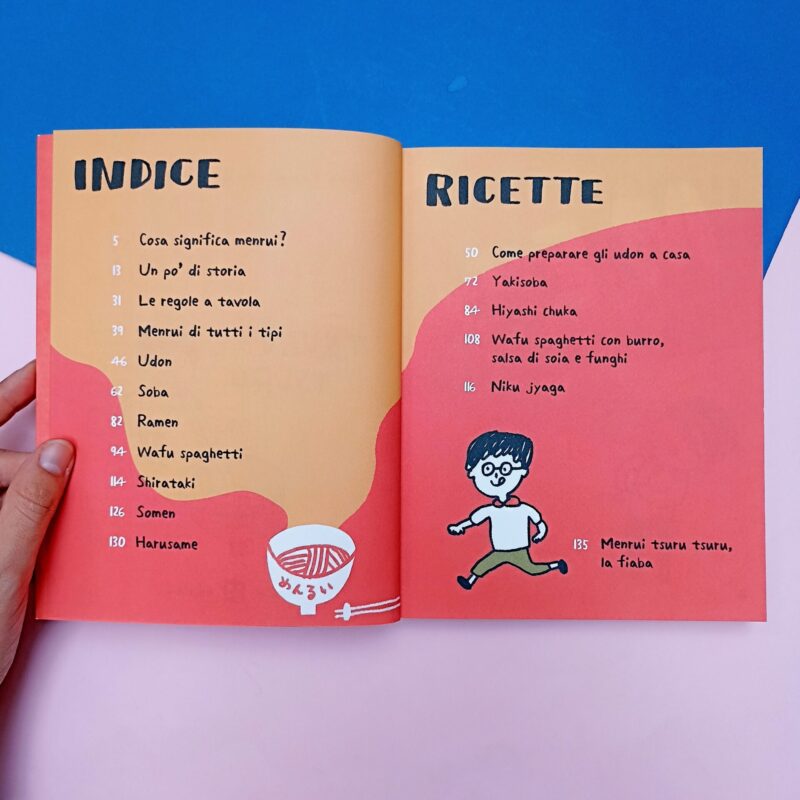 INDICE
5 Cosa significa menrui?
13 Un po' di storia
31 Le regole a tavola
39 Menrui di tutti i tipi
46 Udon
62 Soba
82 Ramen
94 Wafu spaghetti
114 Shirataki
126 Somen
130 Harusame
めんるい
RICETTE
50 Come preparare gli udon a casa
72 Yakisoba
84 Hiyashi chuka
108 Wafu spaghetti con burro,
salsa di soia e funghi
116 Niku jyaga
135 Menrui tsuru tsuru,
la fiaba